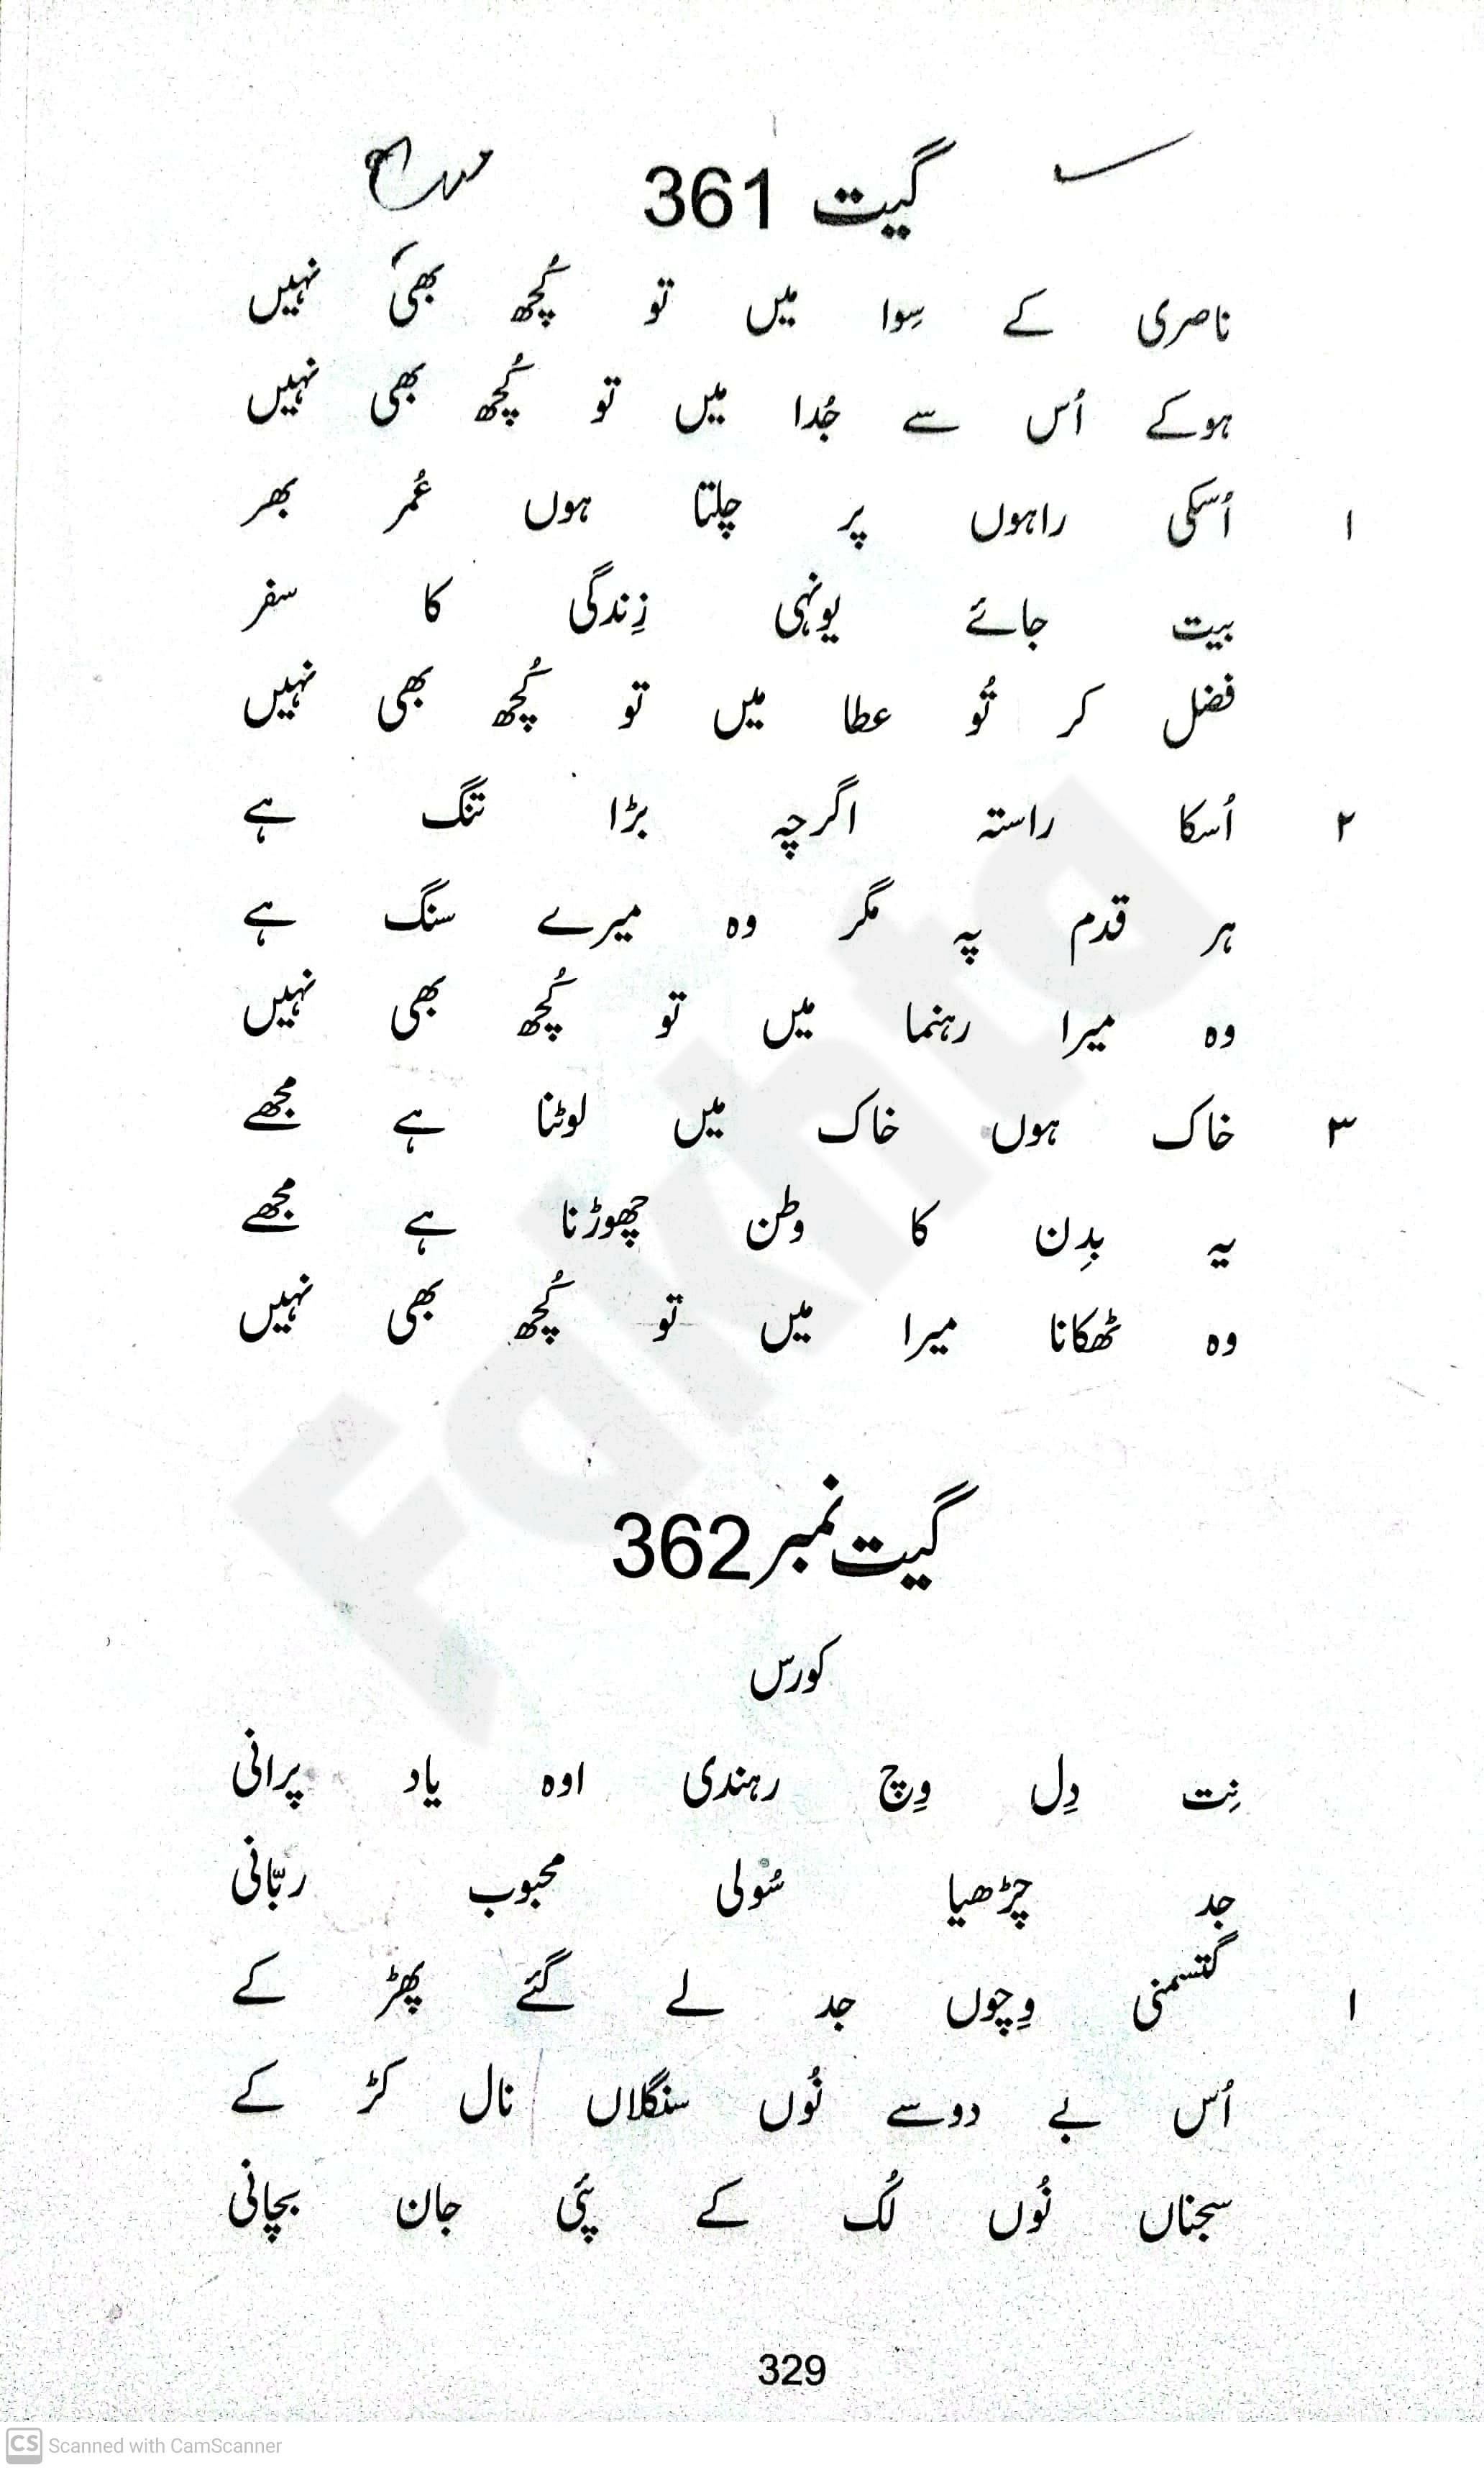 گیت 361
ناصری کے سِوا میں تو کُچھ بھی نہیں
ہوکے اُس سے جُدا میں تو کُچھ بھی نہیں
۱ اُسکی راہوں پر چلتا ہوں عُمر بھر
بیت جائے یونہی زِندگی کا سفر
فضل کر تُو عطا میں تو کُچھ بھی نہیں
۲ اُسکا راستہ اگرچہ بڑا تنگ ہے
ہر قدم پہ مگر وہ میرے سنگ ہے
وہ میرا رہنما میں تو کُچھ بھی نہیں
۳ خاک ہوں خاک میں لوٹنا ہے مجھے
یہ بدِن کا وطن چھوڑنا ہے مجھے
وہ ٹھکانا میرا میں تو کُچھ بھی نہیں
گیت نمبر 362
کورس
نِت دِل وِچ رہندی اوہ یاد پرانی
جد چڑھیا سُولی محبوب ربّانی
۱ گتسمنی وِچوں جد لے گئے پھڑ کے
اُس بے دوسے نُوں سنگلاں نال کڑ کے
سجناں نُوں لُک کے پئی جان بچانی
329
Fakhta
CS Scanned with CamScanner